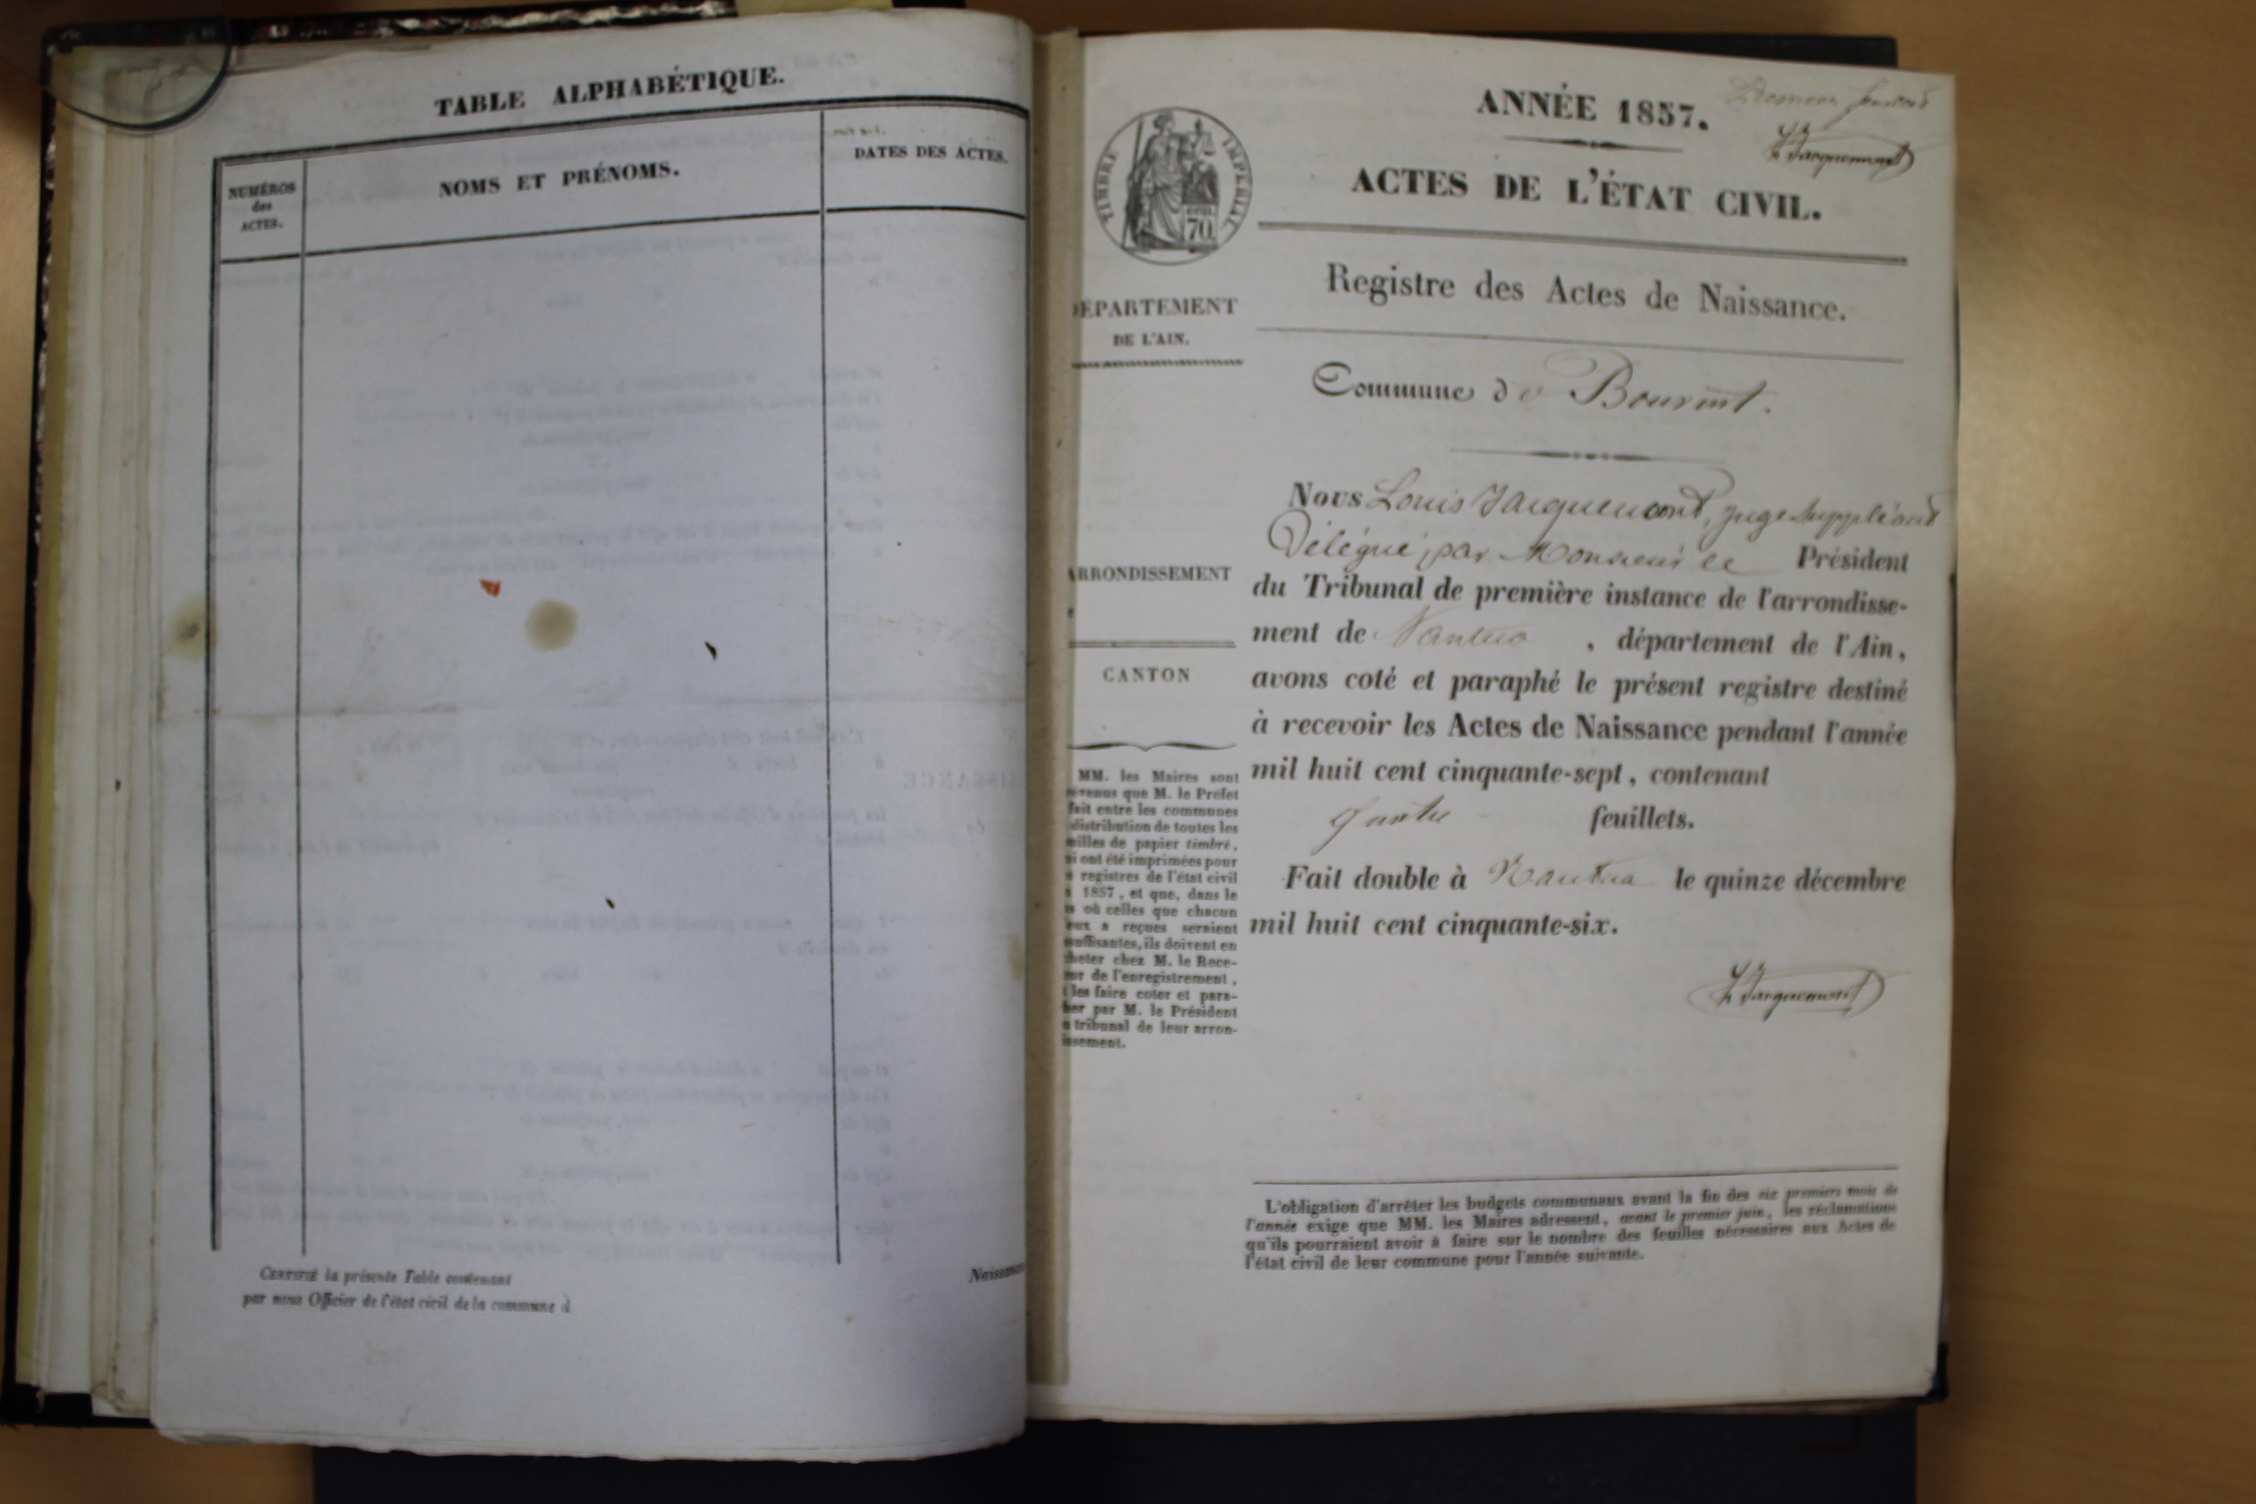 TABLE ALPHABÉTIQUE.
NUMÉROS
des
ACTES.
NOMS ET PRÉNOMS.
DATES DES ACTES.
CERTIFIÉ la présente Table contenant
par nous Officier de l'état civil de la commune d
Naissance
ANNÉE 1857.
L Jacquemont
ACTES DE L'ÉTAT CIVIL.
TIMBRE IMPÉRIAL
70
Registre des Actes de Naissance.
DÉPARTEMENT
DE L'AIN.
Commune de Bouvent.
Nous Louis Jacquemont, juge Suppléant
Délégué par Monsieur le Président
du Tribunal de première instance de l'arrondisse-
ment de Nantua, département de l'Ain,
avons coté et paraphé le présent registre destiné
à recevoir les Actes de Naissance pendant l'année
mil huit cent cinquante-sept, contenant
quatre feuillets.
Fait double à Nantua le quinze décembre
mil huit cent cinquante-six.
L Jacquemont
ARRONDISSEMENT
CANTON
MM. les Maires sont
prévenus que M. le Préfet
fait entre les communes
distribution de toutes les
feuilles de papier timbré,
qui ont été imprimées pour
registres de l'état civil
1857, et que, dans le
cas où celles que chacun
d'eux a reçues seraient
insuffisantes, ils doivent en
acheter chez M. le Rece-
veur de l'enregistrement,
et les faire coter et para-
pher par M. le Président
du tribunal de leur arron-
dissement.
L'obligation d'arrêter les budgets communaux avant la fin des six premiers mois de
l'année exige que MM. les Maires adressent, avant le premier juin, les réclamations
qu'ils pourraient avoir à faire sur le nombre des feuilles nécessaires aux Actes de
l'état civil de leur commune pour l'année suivante.